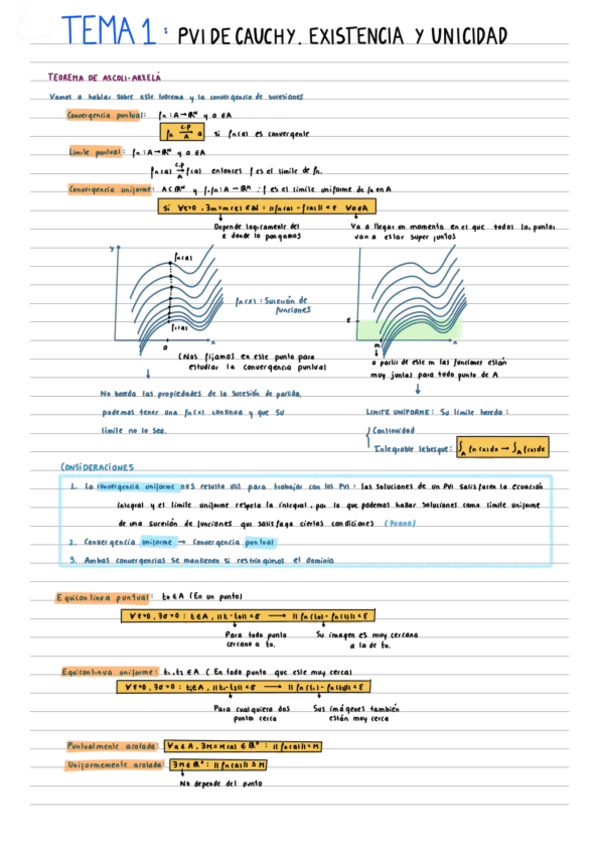 TEMA 1: PVI DE CAUCHY. EXISTENCIA Y UNICIDAD
TEOREMA DE ASCOLI-ARZELÁ
Vamos a hablar sobre este teorema y la convergencia de sucesiones
Convergencia puntual: fn: A → ℝᴺ y a ∈ A
fn c.p→A a si fn(a) es convergente
Límite puntual: fn: A → ℝᴺ y a ∈ A
fn(a) c.p→A f(a) entonces f es el límite de fn.
Convergencia uniforme: A ⊂ ℝᴹ y f, fn: A → ℝᴺ : f es el límite uniforme de fn en A
si ∀ε>0, ∃m=m(ε) ∈ ℕ : ||fn(a) - f(a)|| < ε ∀a∈A
Depende logicamente del
ε donde lo pongamos
Va a llegar un momento en el que todos los puntos
van a estar super juntos
y
fn(a)
f(a)
a
x
fn(x): Sucesión de
funciones
ε
m
x
(Nos fijamos en este punto para
estudiar la convergencia puntual
a partir de este m las funciones están
muy juntas para todo punto de A
No hereda las propiedades de la sucesión de partida,
podemos tener una fn(x) continua y que su
límite no lo sea.
LIMITE UNIFORME: Su límite hereda:
Continuidad
Integrable lebesgue: ∫A fn(x)dx → ∫A f(x)dx
CONSIDERACIONES
1. La convergencia uniforme nos resulta útil para trabajar con los PVI: las soluciones de un PVI satisfacen la ecuación
integral y el límite uniforme respeta la integral, por lo que podemos hallar soluciones como límite uniforme
de una sucesión de funciones que satisfaga ciertas condiciones (Peano)
2. Convergencia uniforme → Convergencia puntual
3. Ambas convergencias se mantienen si restringimos el dominio
Equicontinua puntual: t₀∈A (En un punto)
∀ε>0, ∃σ>0 : t∈A, ||t-t₀||<σ → ||fn(t₀) - fn(t)||<ε
Para todo punto
cercano a t₀.
Su imagen es muy cercana
a la de t₀.
Equicontinua uniforme: t₁,t₂ ∈A (En todo punto que este muy cerca)
∀ε>0, ∃σ>0 : t₁∈A, ||t₁-t₂||<σ → ||fn(t₁) - fn(t₂)||<ε
Para cualquiera dos
puntos cerca
Sus imágenes también
están muy cerca
Puntualmente acotada: ∀a∈A, ∃M=M(a) ∈ ℝ⁺ : ||fn(a)||≤M
Uniformemente acotada: ∃M∈ℝ⁺ : ||fn(a)||≤M
No depende del punto